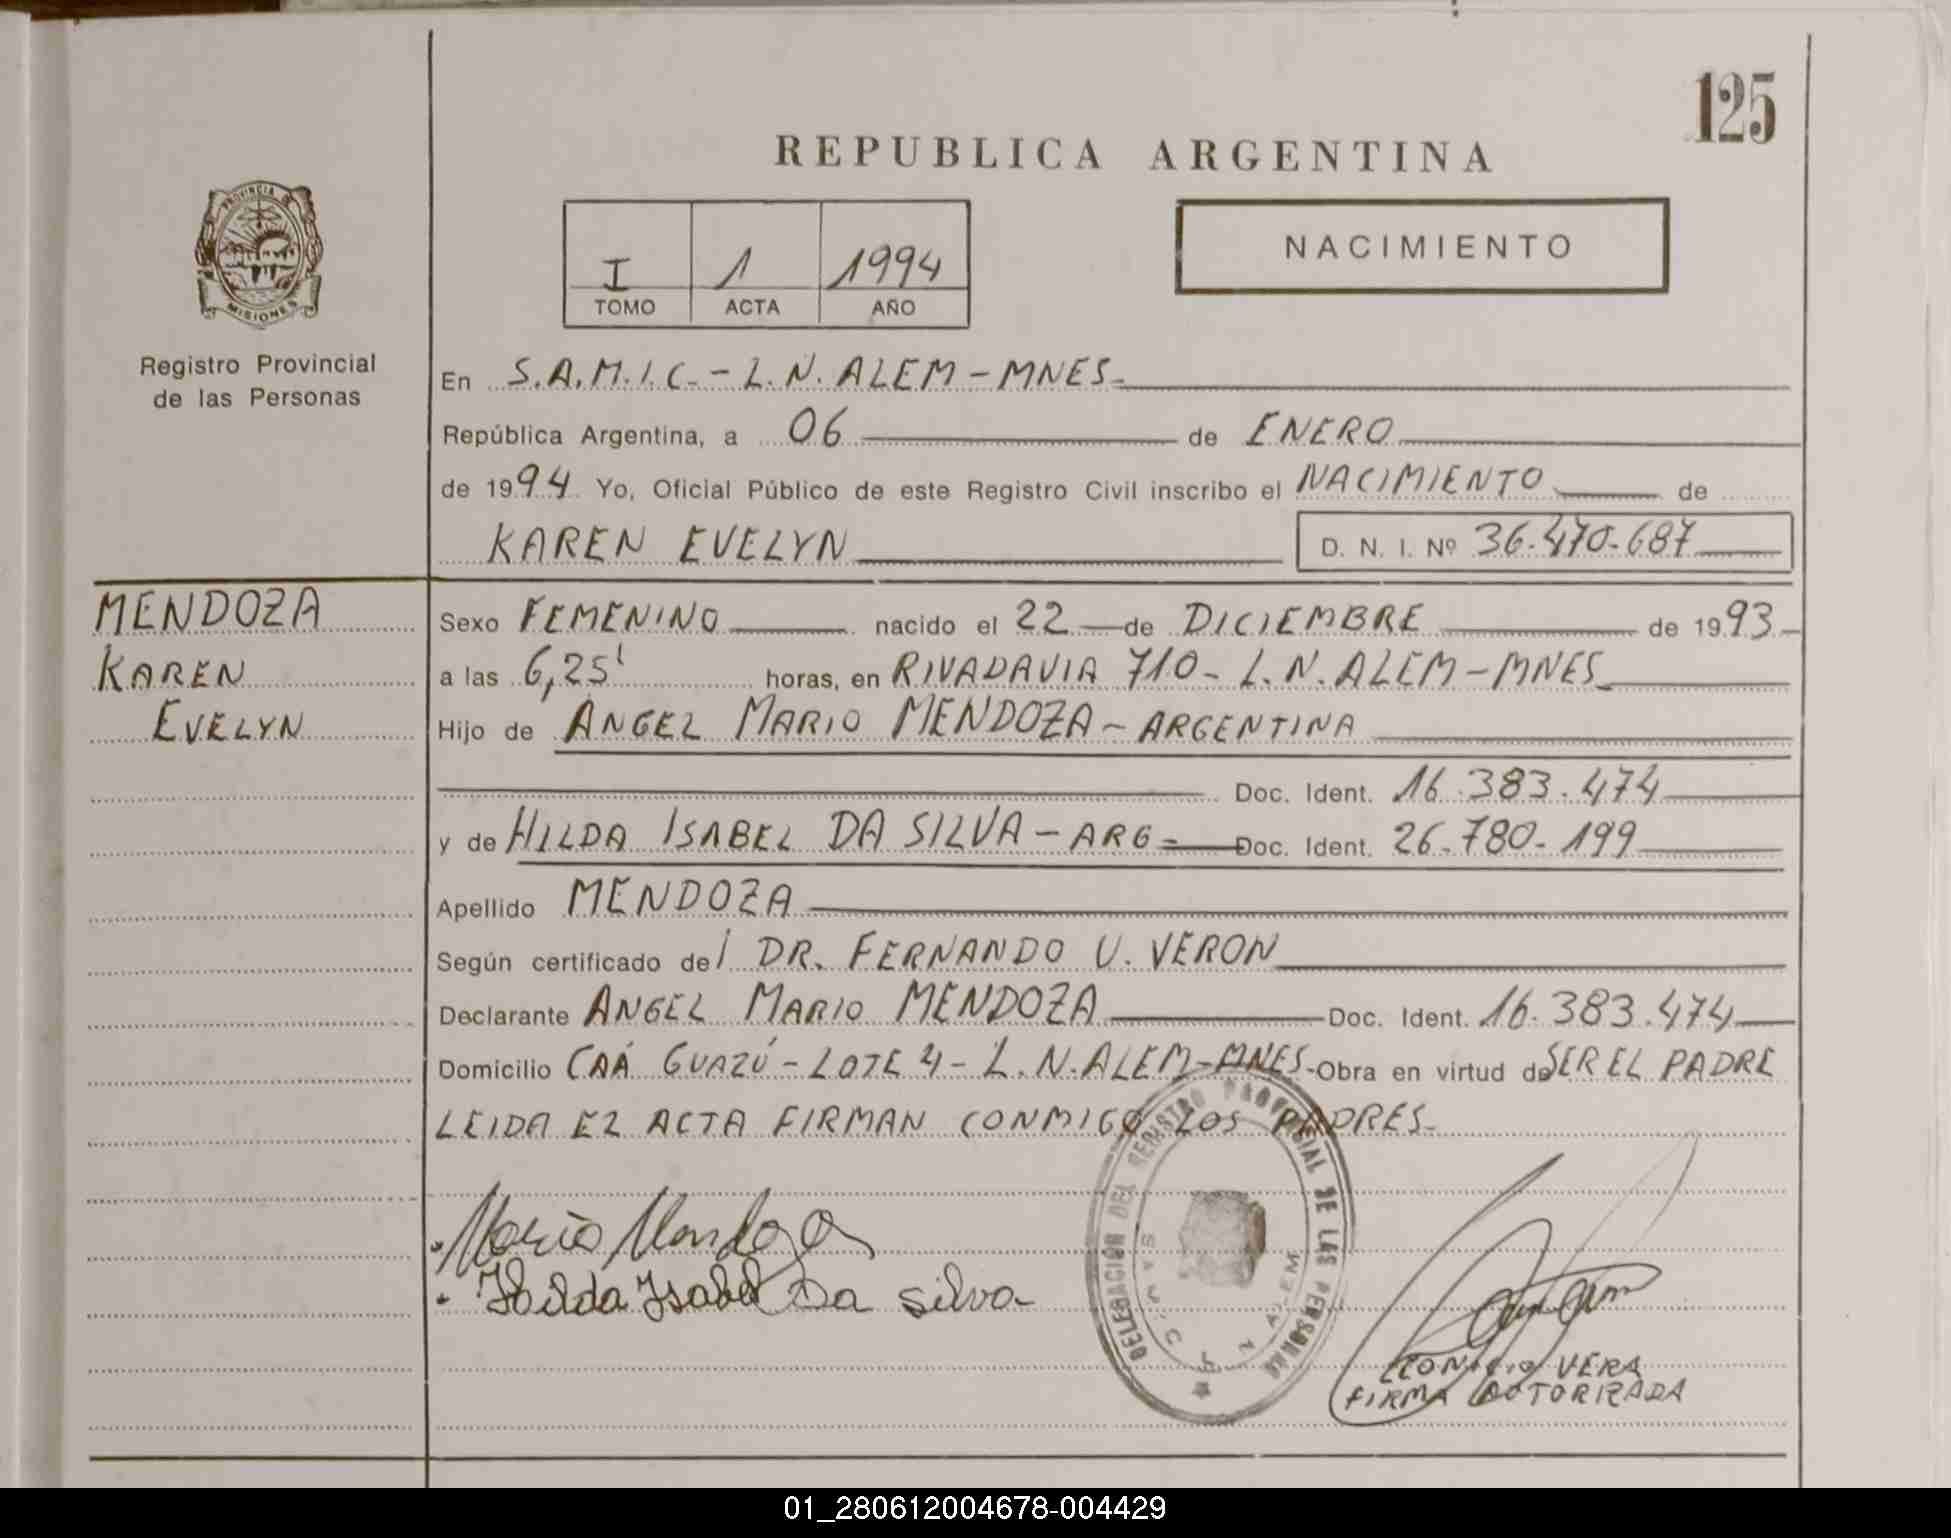 125
REPUBLICA ARGENTINA
PROVINCIA DE
MISIONES
I 1 1994
TOMO ACTA AÑO
NACIMIENTO
Registro Provincial
de las Personas
En S.A.M.I.C. - L.N. ALEM - MNES -
República Argentina, a 06 de ENERO
de 1994 Yo, Oficial Público de este Registro Civil inscribo el NACIMIENTO de
KAREN EVELYN D. N. I. Nº 36.470.687
MENDOZA
KAREN
EVELYN
Sexo FEMENINO nacido el 22 de DICIEMBRE de 1993
a las 6,25' horas, en RIVADAVIA 710 - L.N. ALEM - MNES
Hijo de ANGEL MARIO MENDOZA - ARGENTINA
Doc. Ident. 16.383.474
y de HILDA ISABEL DA SILVA - ARG - Doc. Ident. 26.780.199
Apellido MENDOZA
Según certificado del DR. FERNANDO U. VERON
Declarante ANGEL MARIO MENDOZA Doc. Ident. 16.383.474
Domicilio CAÁ GUAZÚ - LOTE 4 - L.N. ALEM - MNES - Obra en virtud de SER EL PADRE
LEIDA EL ACTA FIRMAN CONMIGO LOS PADRES -
Mario Mendoza
Hilda Isabel Da silva
DELEGACION DEL REGISTRO PROVINCIAL DE LAS PERSONAS
N. ALEM
VERA
FIRMA AUTORIZADA
01_280612004678-004429